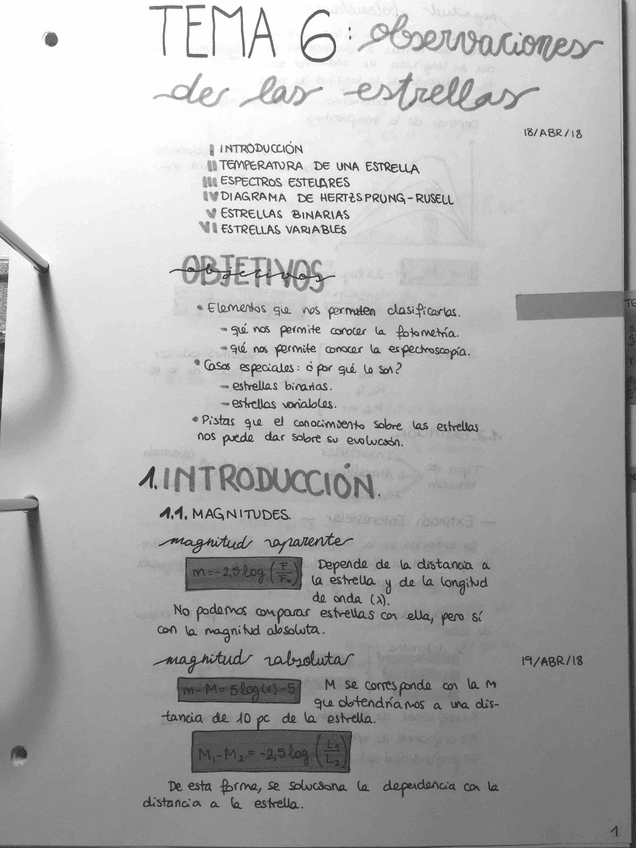 TEMA 6: observaciones
de las estrellas
18/ABR/18
I INTRODUCCIÓN
II TEMPERATURA DE UNA ESTRELLA
III ESPECTROS ESTELARES
IV DIAGRAMA DE HERTZSPRUNG-RUSELL
V ESTRELLAS BINARIAS
VI ESTRELLAS VARIABLES
OBJETIVOS
objetivos
• Elementos que nos permiten clasificarlas.
- qué nos permite conocer la fotometría.
- qué nos permite conocer la espectroscopía.
• Casos especiales: ¿por qué lo son?
- estrellas binarias.
- estrellas variables.
• Pistas que el conocimiento sobre las estrellas
nos puede dar sobre su evolución.
1. INTRODUCCIÓN.
1.1. MAGNITUDES.
magnitud aparente
m = -2,5 log (F/F₀) Depende de la distancia a
la estrella y de la longitud
de onda (λ).
No podemos comparar estrellas con ella, pero sí
con la magnitud absoluta.
magnitud absoluta
19/ABR/18
m - M = 5 log(r) - 5 M se corresponde con la m
que obtendríamos a una dis-
tancia de 10 pc de la estrella.
M₁ - M₂ = -2,5 log (L₁/L₂)
De esta forma, se soluciona la dependencia con la
distancia a la estrella.
1